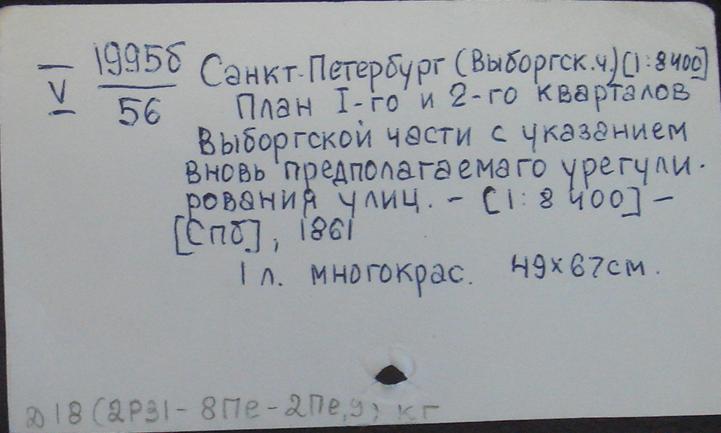 V 1995б/56
Санкт-Петербург (Выборгск.ч.) [1:8400]
План I-го и 2-го кварталов
Выборгской части с указанием
вновь предполагаемаго урегули-
рования улиц. - [1:8 400] -
[Спб], 1861
1 л. многокрас. 49x67см.
Д18 (2Р31-8Пе-2Пе,9) кг